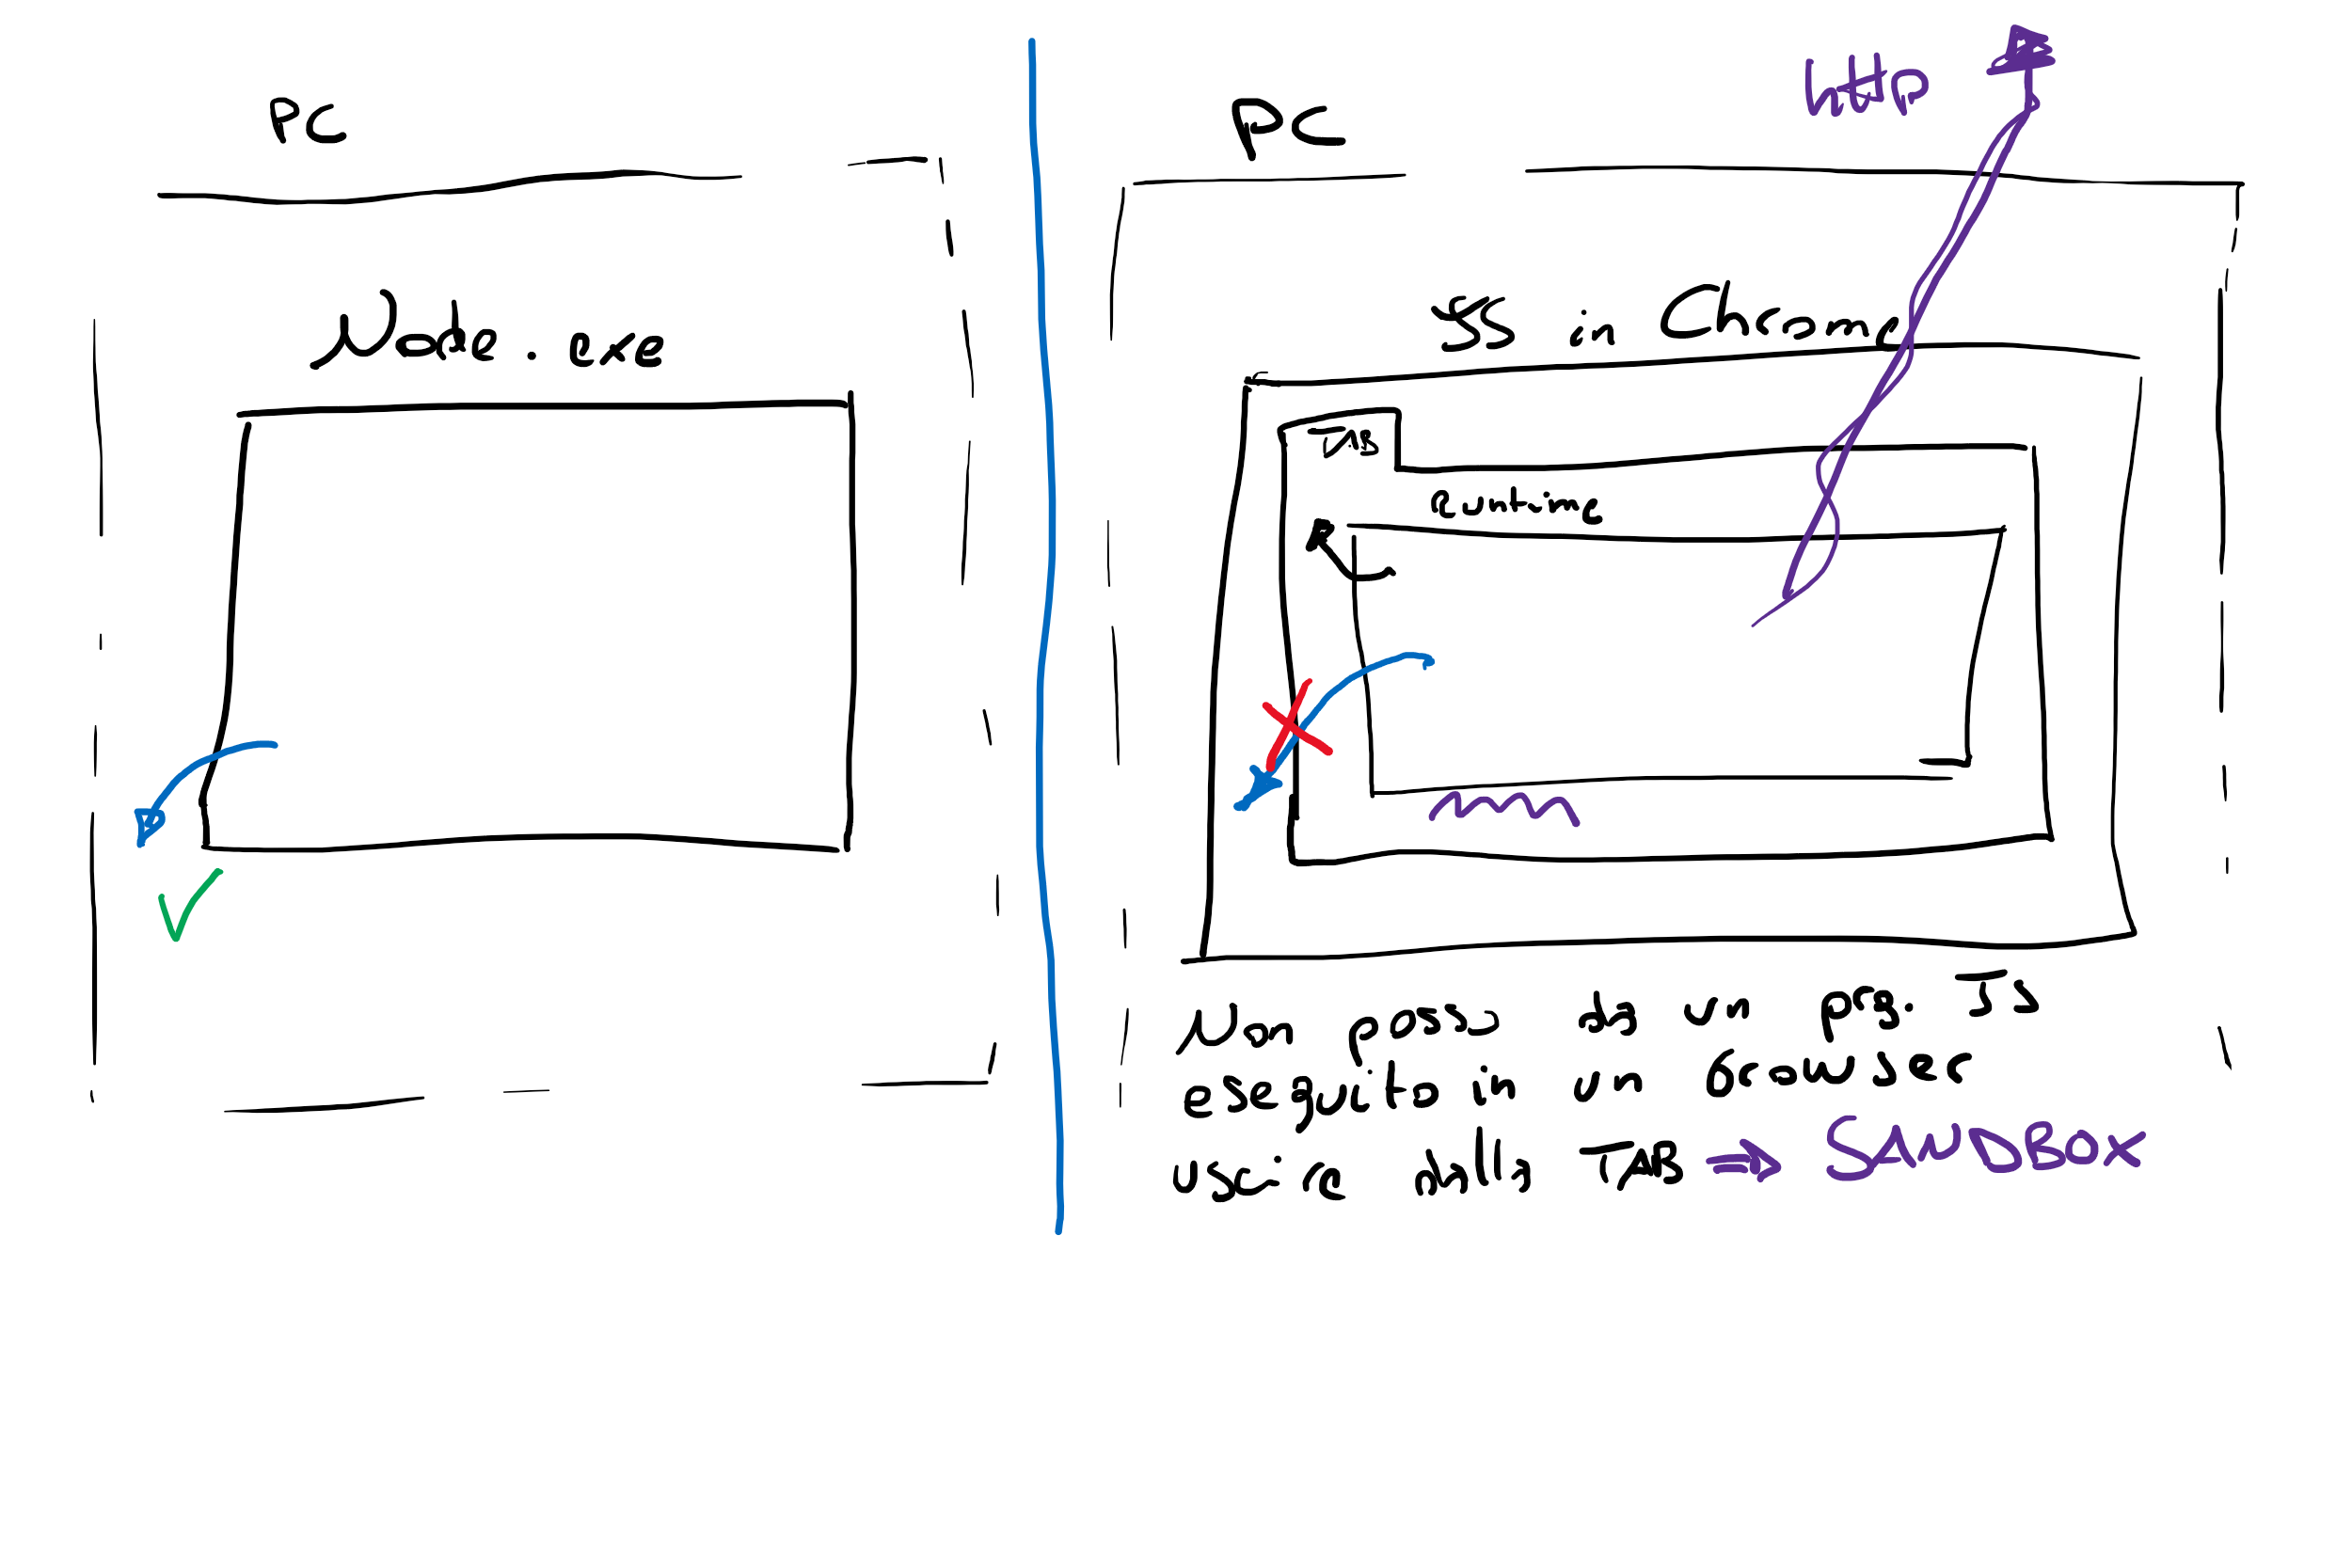 PC
Node.exe
PC
HTTP
JS in Chrome
TAB
Runtime
Non posso da un prg. JS
eseguito in un browser
uscire nella TAB => SANDBOX